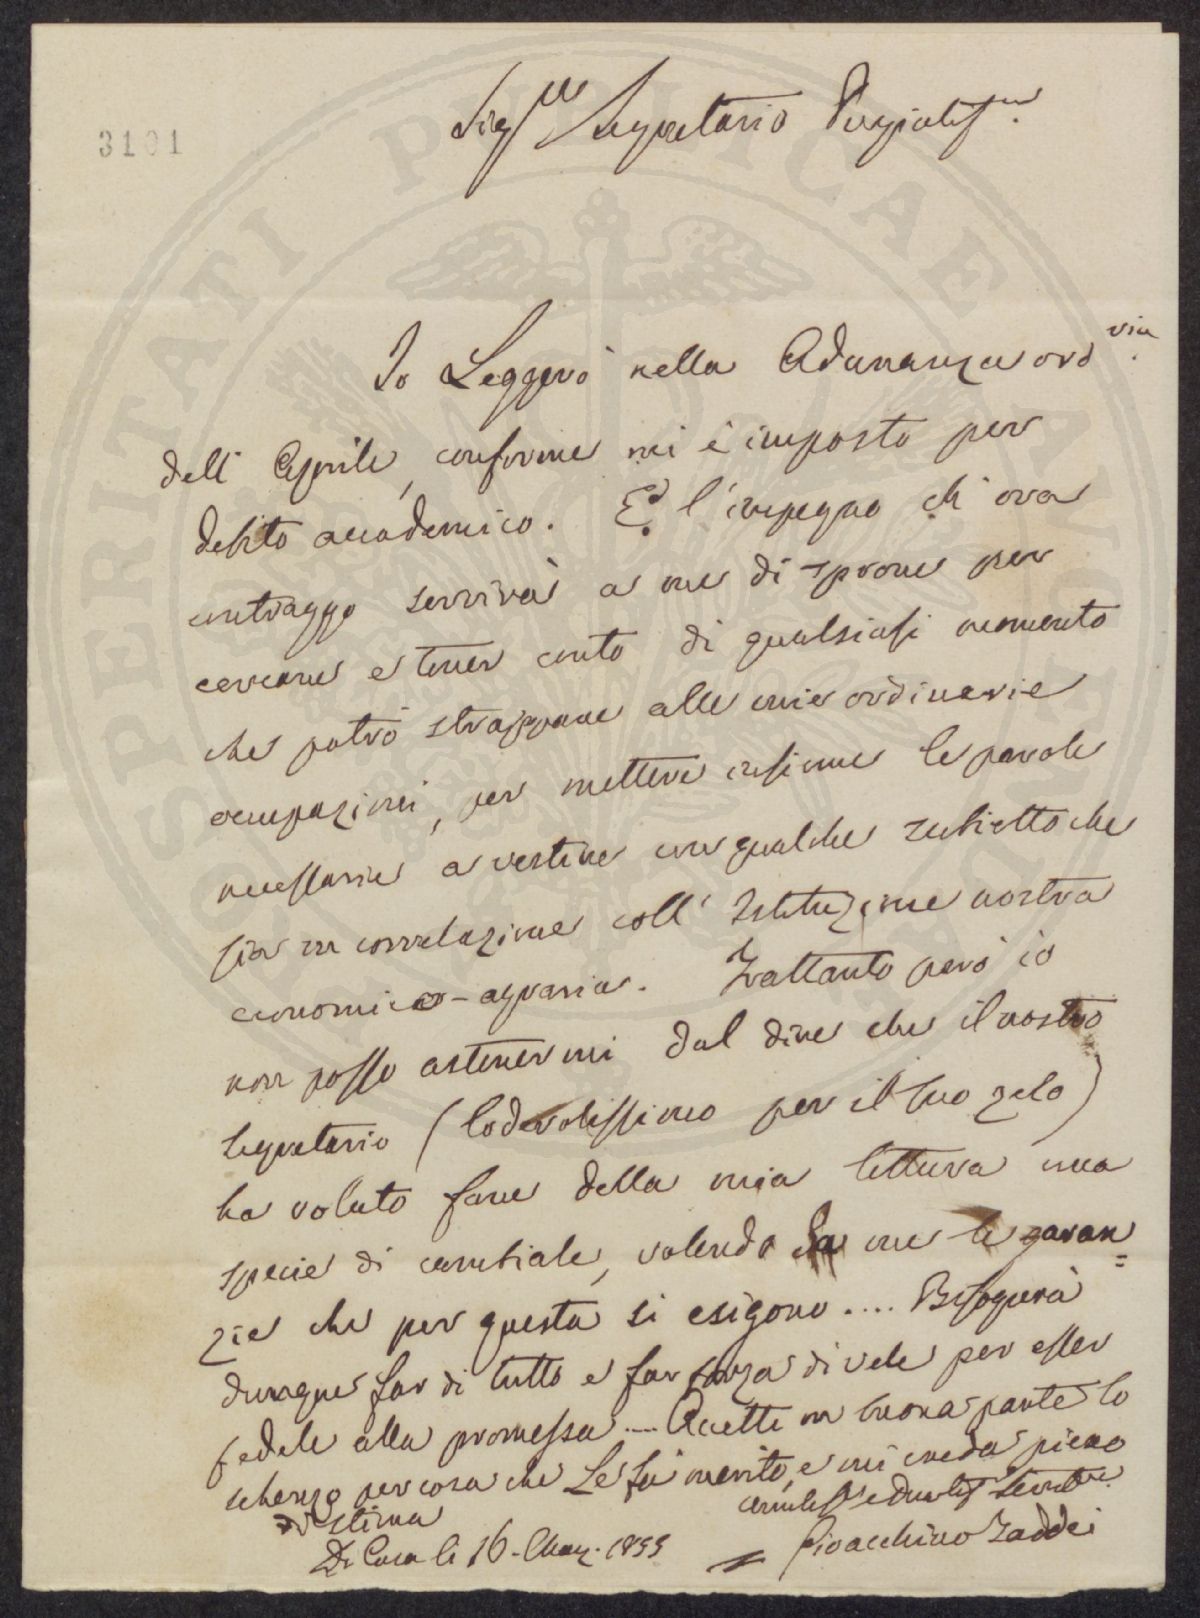 3101
Sig.re Segretario Pregiatiss.mo
Io Leggerò nella Adunanza ord.ria
dell' Aprile, conforme mi è imposto per
debito accademico. E l'impegno ch' ora
contraggo servirà a me di sprone per
cercare e tener conto di qualsiasi momento
che potrò strappare alle mie ordinarie
occupazioni, per mettere insieme le parole
necessarie a vestire un qualche subietto che
sia in correlazione coll' Istituzione nostra
economico-agraria. Frattanto però io
non posso astenermi dal dire che il nostro
Segretario (lodevolissimo per il suo zelo)
ha voluto fare della mia lettura una
specie di cambiale, volendo da me le garan=
zie che per questa si esigono.... Bisognerà
dunque far di tutto e far forza di vele per esser
fedele alla promessa.... Accetti in buona parte lo
scherzo per cosa che Le fa merito, e mi creda pieno
di stima
Di Casa li 16. Marz. 1855
Gioacchino Taddei
SPERITATI PUBLICAE AUGENDAE